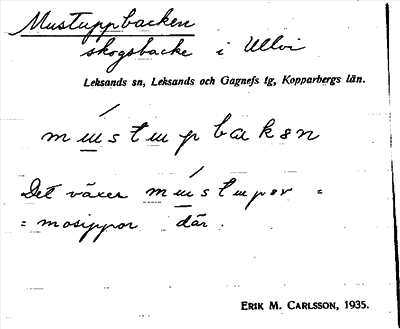 Mustuppbacken
skogsbacke i Ullvi
Leksands sn, Leksands och Gagnefs tg, Kopparbergs län.
mustupbakən
Det växer mustupər =
= mosippor där.
ERIK M. CARLSSON, 1935.